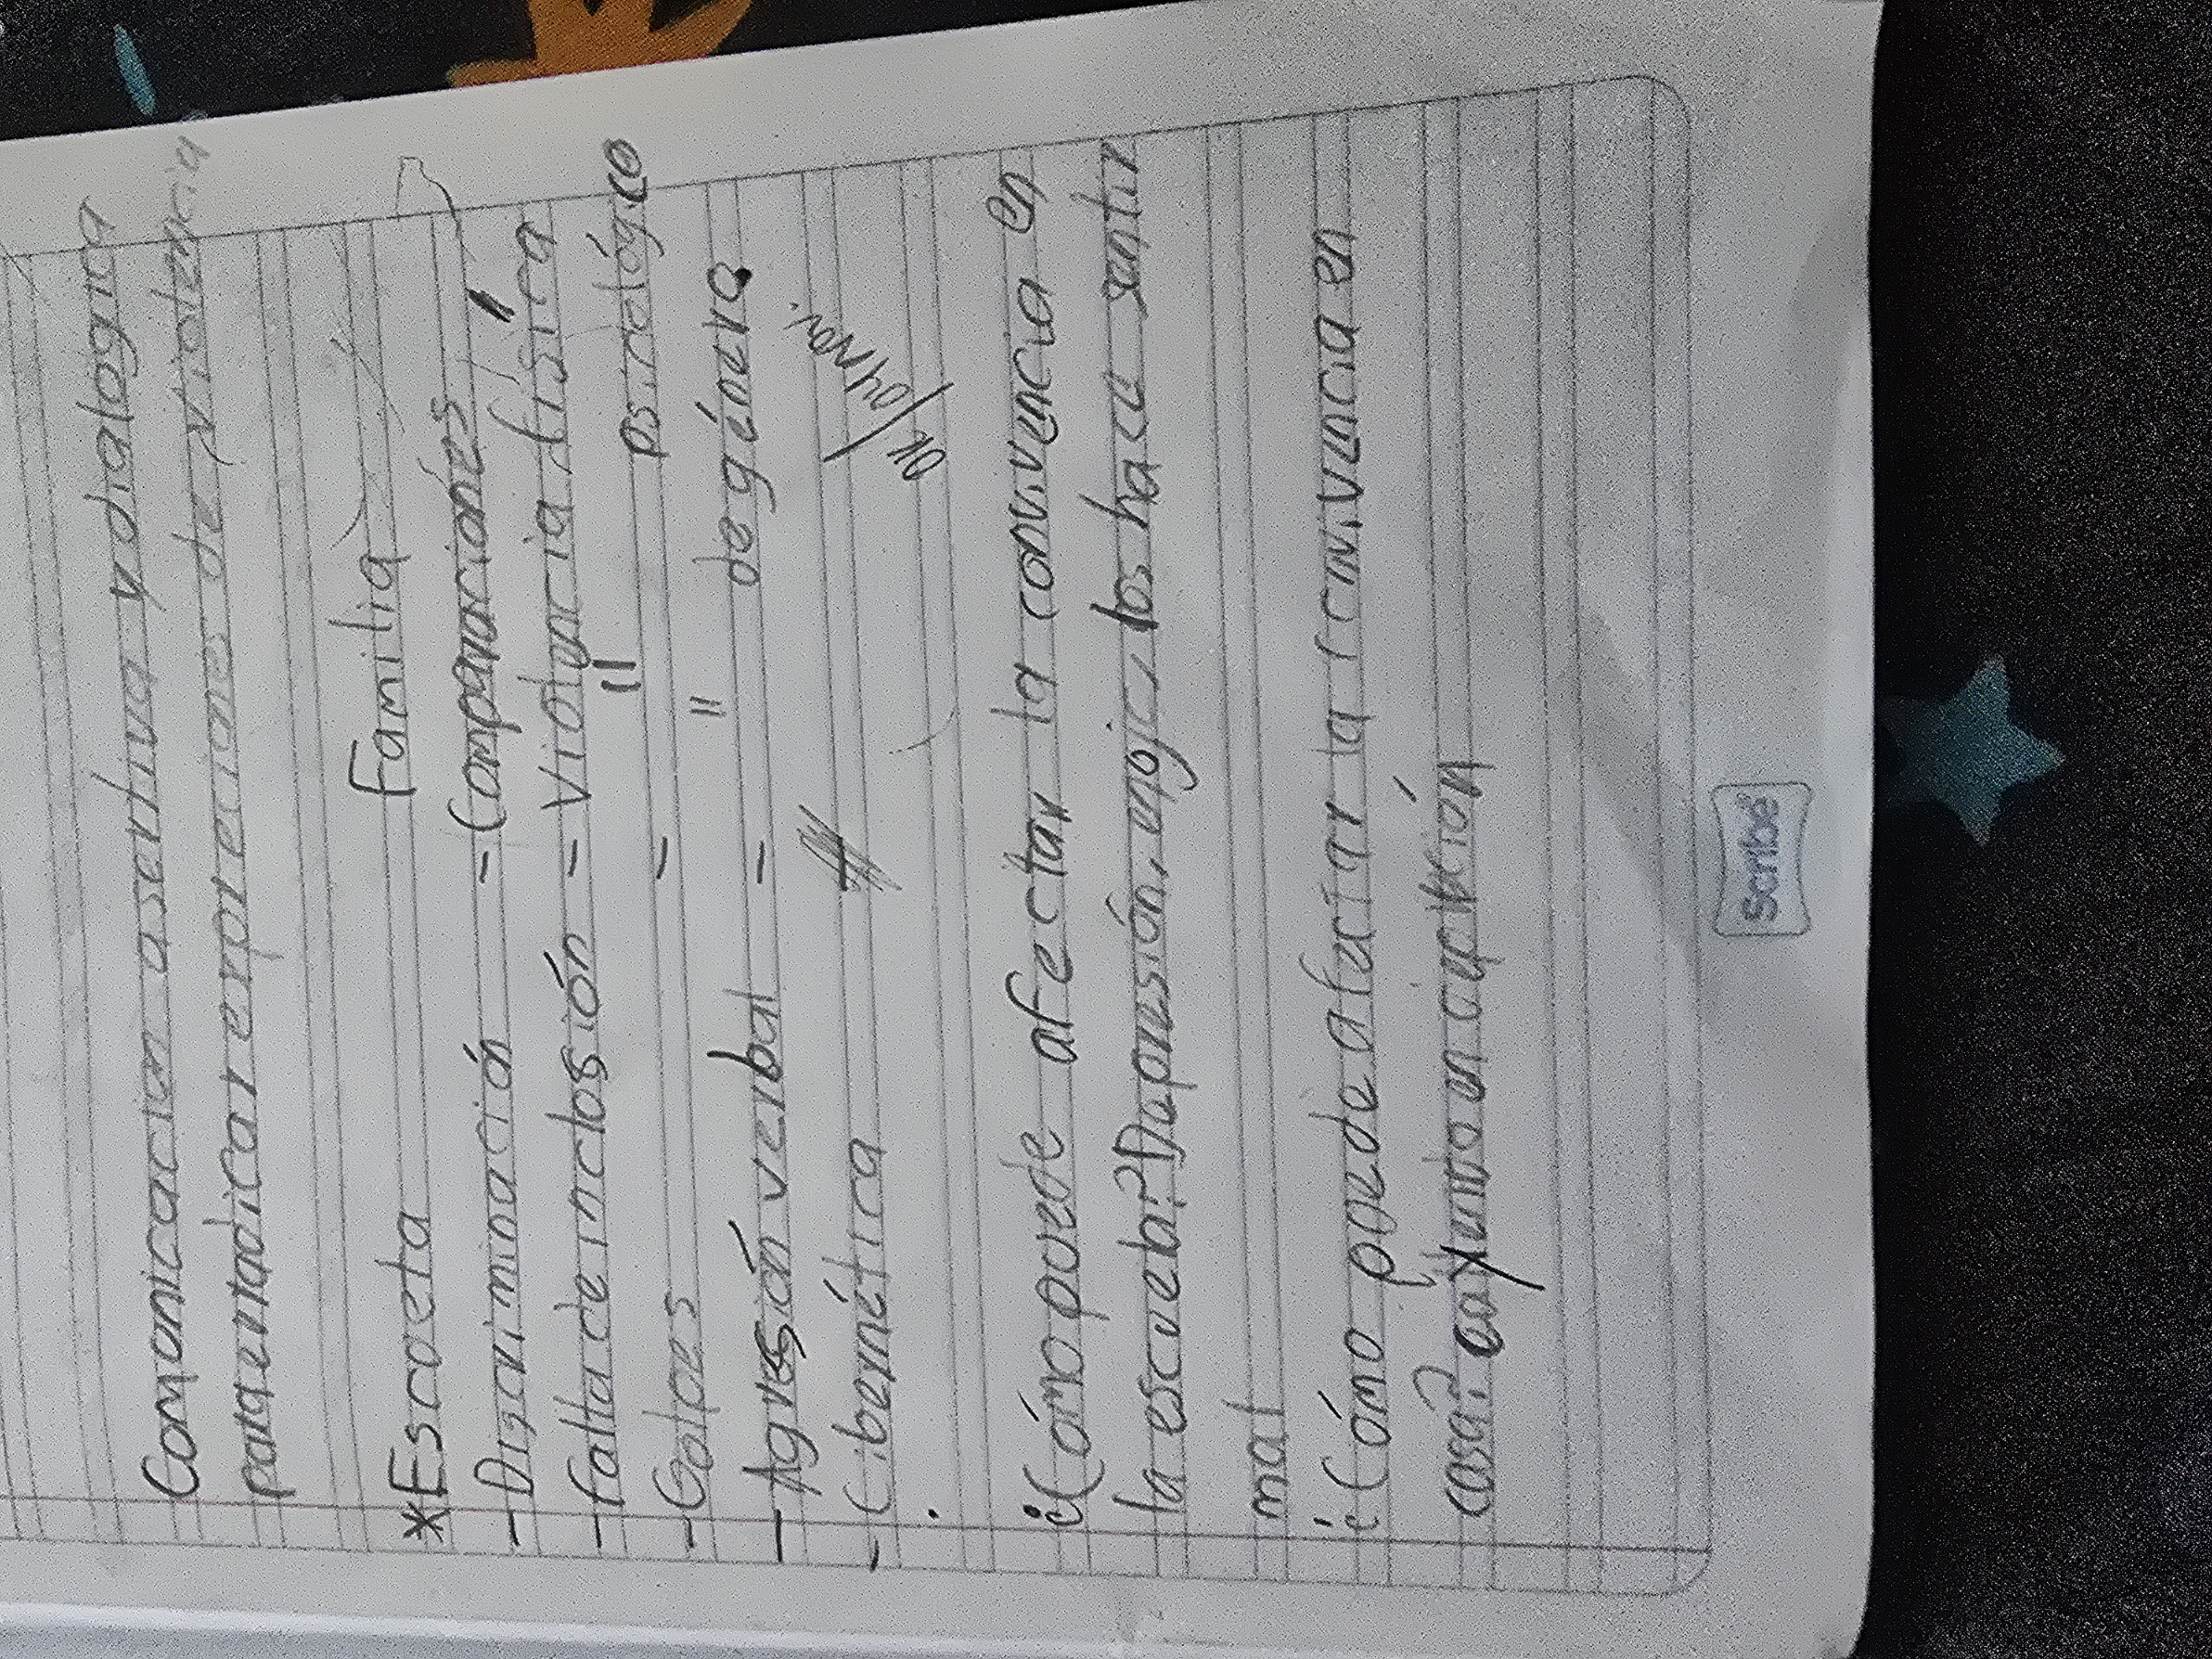 Comonicación asertiva y dialogica
para erradicar erpreciones de violencia
*Escoeta Familia
-Discriminación -Comparaciones
-falta de inclosión -Violencia física
-Golpes - " psicológico
-Agresión verbal - " de género
-Cibernética
¿Cómo puede afectar la convivencia en
la escuela? Depresión, enojo, los hace sentir
mal
¿Cómo puede afectar la convivencia en
casa?
Scribe